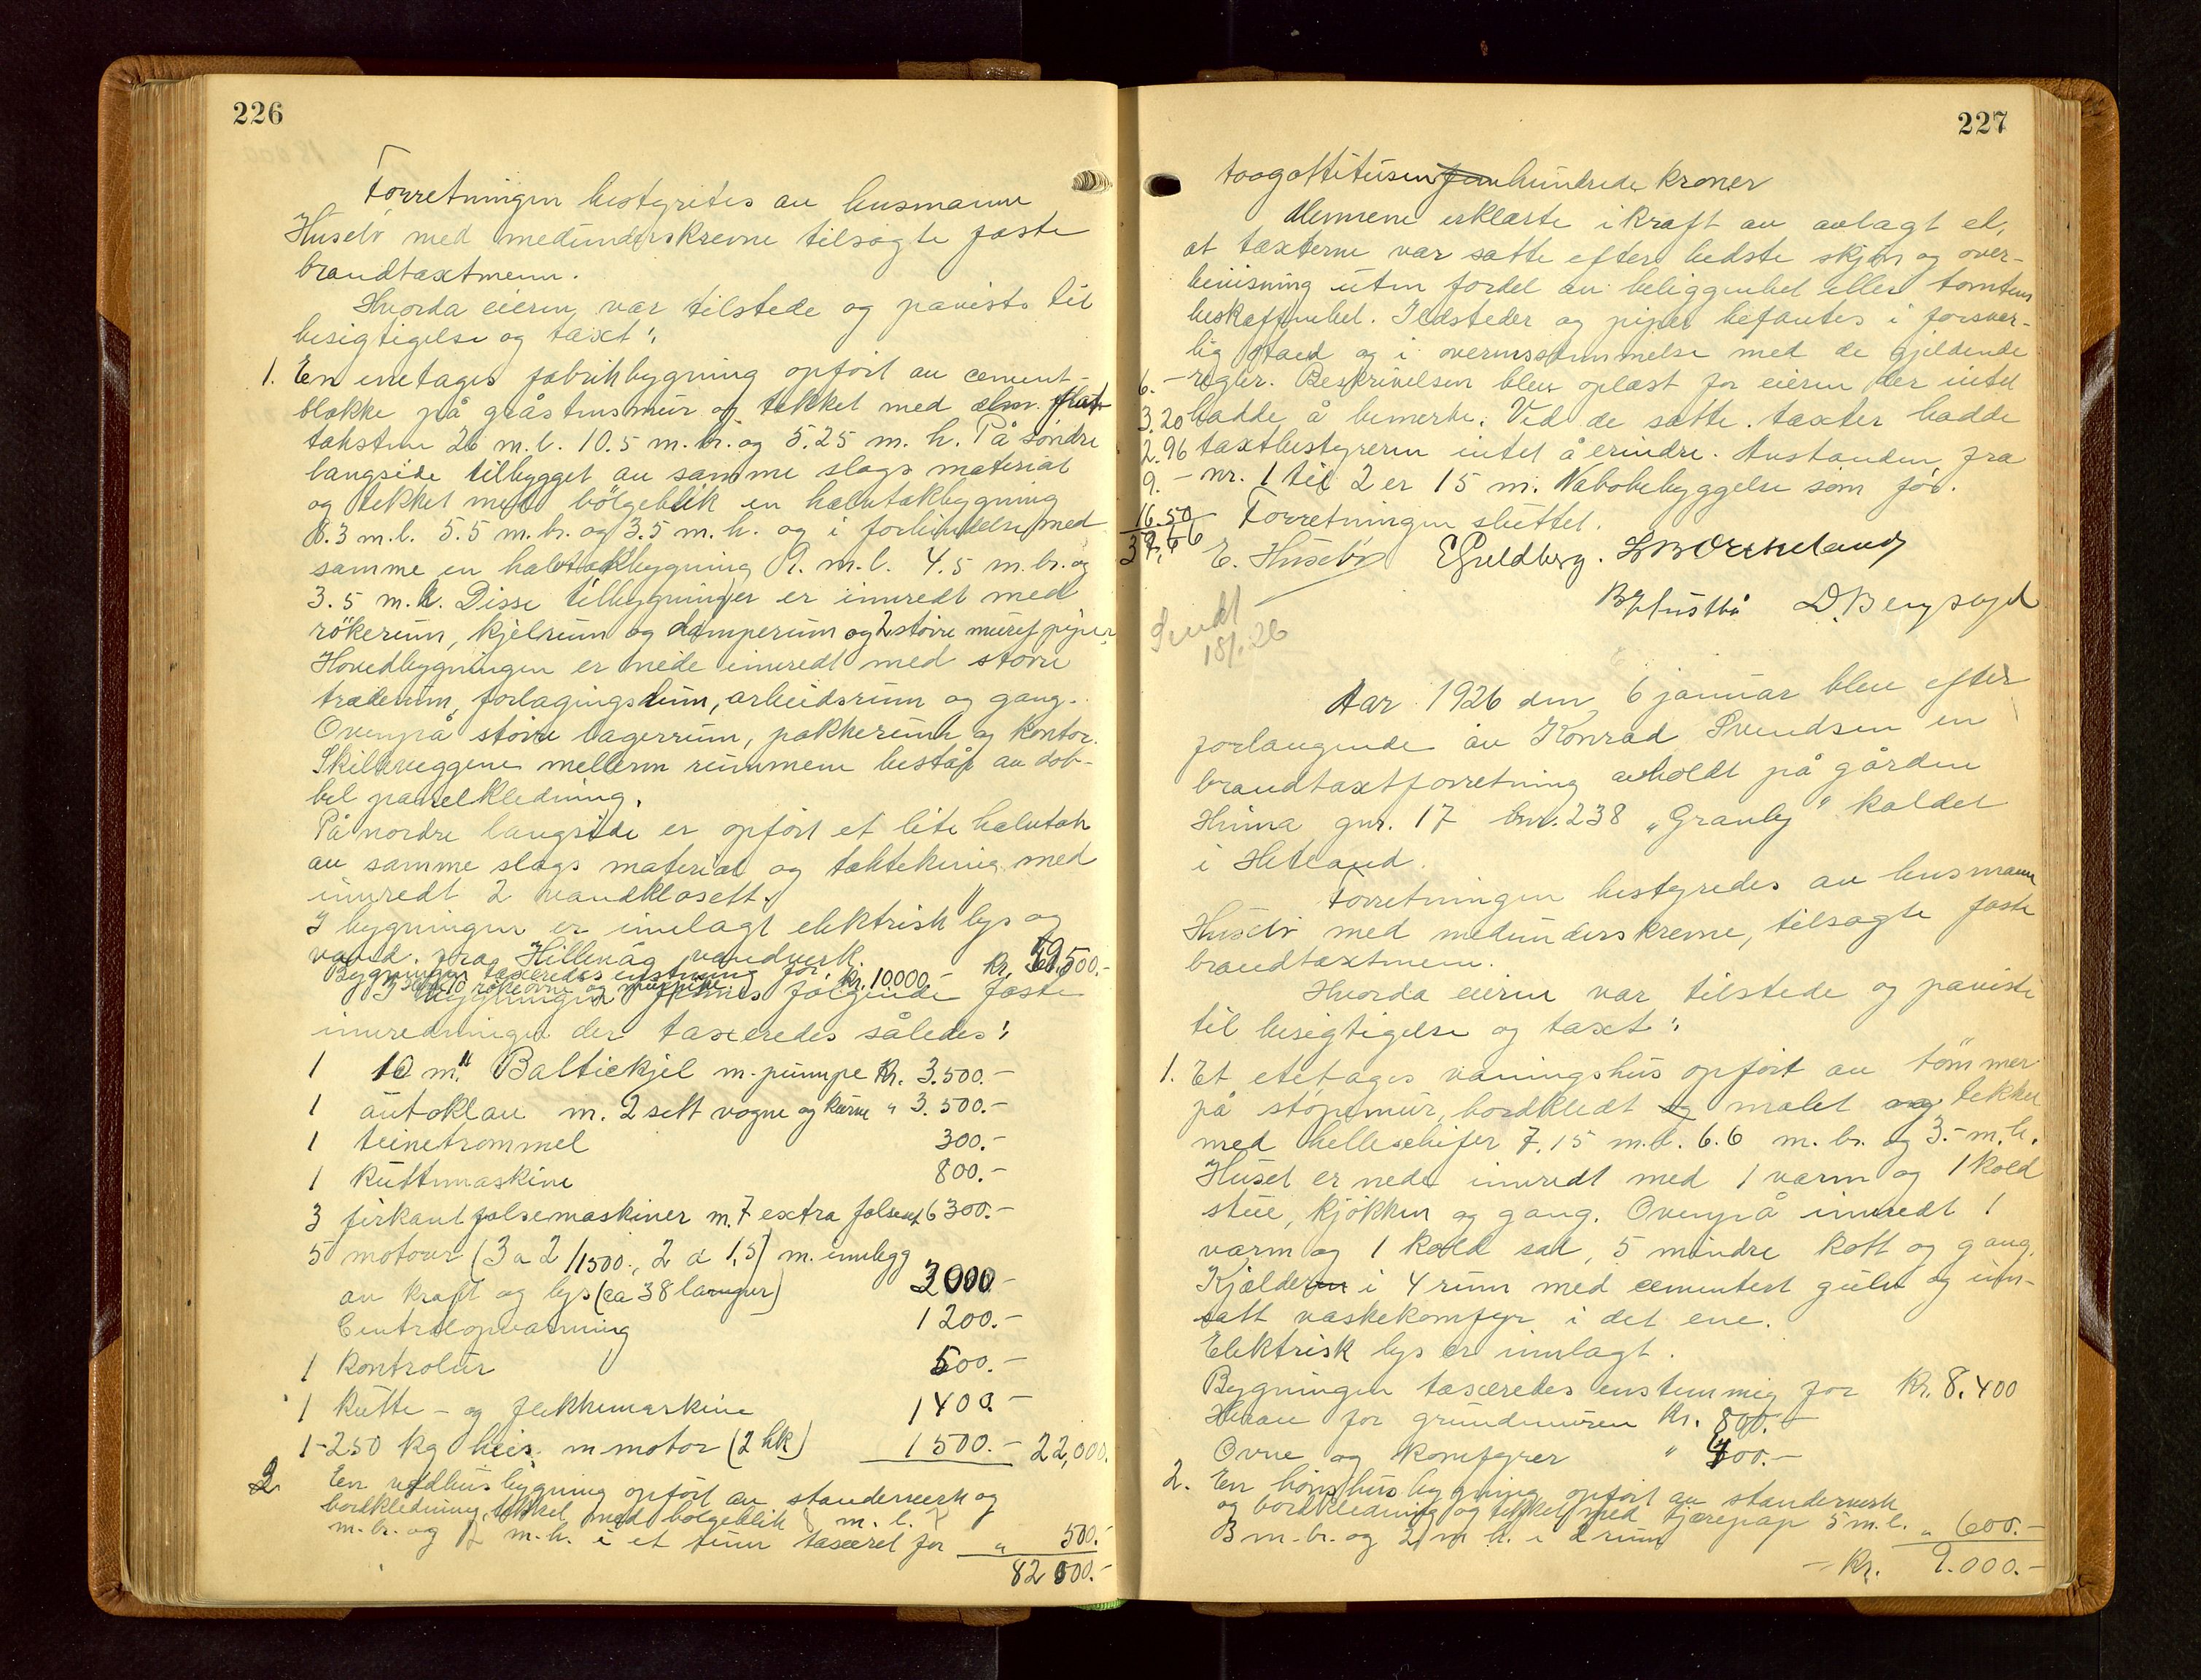 226
Forretningen bestyredes av husmann
Husebø med medunderskrevne tilsagte faste
brandtaxtmenn.
Hvorda eieren var tilstede og paviste til
besigtigelse og taxt:
1. En enetages fabrikbygning opført av cement-
blokke på gråstensmur og tekket med
taksten 26 m.l. 10.5 m.br. og 5.25 m. h. På søndre
langside tilbygget av samme slags material
og tekket med bølgeblik en halvtakbygning
8.3 m.l. 5.5 m.br. og 3.5 m.h. og i forbindelse med
samme en halvtakbygning 9. m.l. 4.5 m.br. og
3.5 m.h. Disse tilbygninger er innredt med
røkerum, kjelrum og damperum og 2 større muret piper.
Hovedbygningen er nede innredt med større
træderum, forlagingsrum, arbeidsrum og gang.
Ovenpå større lagerrum, pakkerum og kontor.
Skilleveggene mellem rummene består av dob-
bel panelkledning.
På nordre langside er opført et lite halvtak
av samme slags material og taktekning med
innredt 2 vandklosett.
I bygningen er innlagt elektrisk lys og
vand fra Hillevåg vandverk.
Bygningen taxeredes enstemmig for kr. 59.500.-
10 røkeovne og murpipe kr. 10000.-
I bygningen finnes følgende faste
innredninger der taxeredes således:
1 10 m" Baltickjel m. pumpe Kr. 3.500.-
1 autoklav m. 2 sett vogne og kurve " 3.500.-
1 teinetrommel 300.-
1 kuttmaskine 800.-
3 firkant falsemaskiner m. 7 extra falsesett 6300.-
5 motorer (3 a 2/1500., 2 a 1,5) m. innlegg
av kraft og lys (ca 38 lamper) 3000.-
Centralopvarming 1200.-
1 kontrolur 500.-
1 kutte- og flekkemaskine 1400.-
1-250 kg heis m motor (2 hk) 1500.- 22,000.
2. En vedhusbygning opført av standerverk og
bordkledning, tekket med bølgeblik m. l.
m.br. og 2 m.h. i et rum taxeret for " 500.-
82 000.-
227
toogottitusen fem hundrede kroner
Mennene erklærte i kraft av avlagt ed,
at taxterne var satte efter bedste skjøn og over-
bevisning uten fordel av beliggenhet eller tomtens
beskaffenhet. Ildsteder og piper befantes i forsvar-
lig stand og i overensstemmelse med de gjeldende
6.- regler. Beskrivelsen blev oplæst for eieren der intet
3.20 hadde å bemerke. Ved de satte taxter hadde
2.96 taxtbestyreren intet å erindre. Avstanden fra
9.- nr. 1 til 2 er 15 m. Nabobebyggelse som før.
16.50 Forretningen sluttet.
37,66 E. Husebø E Guldberg.
D. Bergsagel
Sendt
18/1.26
Aar 1926 den 6 januar blev efter
forlangende av Konrad Svendsen en
brandtaxtforretning avholdt på gården
Hinna gnr. 17 bnr. 238 „Granly" kaldet
i Hetland.
Forretningen bestyredes av husmann
Husebø med medunderskrevne, tilsagte faste
brandtaxtmenn.
Hvorda eieren var tilstede og paviste
til besigtigelse og taxt:
1. Et etetages våningshus opført av tømmer
på støpemur, bordkledt og malet og tekket
med helleskifer 7.15 m.l. 6.6 m. br. og 3.- m.h.
Huset er nede innredt med 1 varm og 1 kold
stue, kjøkken og gang. Ovenpå innredt 1
varm og 1 kold sal, 5 mindre kott og gang.
Kjelderen i 4 rum med cementert gulv og inn-
satt vaskekomfyr i det ene.
Elektrisk lys er innlagt.
Bygningen taxeredes enstemmig for Kr. 8.400
Herav for grundmuren Kr. 800.-
Ovne og komfyrer " 400.-
2. En hønsehusbygning opført av standerverk
og bordkledning og tekket med tjærepap 5 m.l.
3 m. br. og 2 m h. i 2 rum " 600.-
Kr. 9.000.-